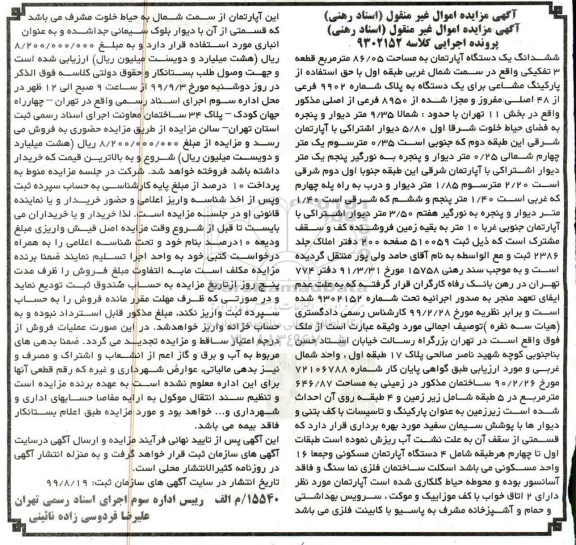 آگهی مزایده اموال غیر منقول (اسناد رهنی)
آگهی مزایده اموال غیر منقول (اسناد رهنی)
پرونده اجرایی کلاسه ۹۳۰۲۱۵۲
ششدانگ یک دستگاه آپارتمان به مساحت ۸۶/۰۵ مترمربع قطعه
۳ تفکیکی واقع در سمت شمال غربی طبقه اول با حق استفاده از
پارکینگ مشاعی برای یک دستگاه به پلاک شماره ۹۹۰۲ فرعی
از ۴۸ اصلی مفروز و مجزا شده از ۸۹۵۰ فرعی از اصلی مذکور
واقع در بخش ۱۱ تهران با حدود : شمالا ۹/۳۵ متر دیوار و پنجره
به فضای حیاط خلوت شرقا اول ۵/۸۰ دیوار اشتراکی با آپارتمان
شرقی این طبقه دوم که جنوبی است ۰/۳۵ مترسوم یک متر
چهارم شمالی ۰/۲۵ متر دیوار و پنجره به نورگیر پنجم یک متر
دیوار اشتراکی با آپارتمان شرقی این طبقه جنوبا اول دوم شرقی
است ۲/۲۰ مترسوم ۱/۸۵ متر دیوار و درب به راه پله چهارم
که غربی است ۱/۴۰ متر پنجم و ششم که شرقی است ۱/۴۰
متر دیوار و پنجره به نورگیر هفتم ۳/۵۰ متر دیوار اشتراکی با
آپارتمان جنوبی غربا ۱۰ متر به بقیه زمین فروشنده کف و سقف
مشترک است که ذیل ثبت ۵۱۰۰۵۹ صفحه ۲۰۰ دفتر املاک جلد
۲۳۸۶ ثبت و مع الواسطه به نام آقای حامد ولی پور منتقل گردیده
است و به موجب سند رهنی ۱۵۷۵۸ مورخ ۹۱/۳/۳۱ دفتر ۷۷۴
تهران در رهن بانک رفاه کارگران قرار گرفته که به علت عدم
ایفای تعهد منجر به صدور اجرائیه تحت شماره ۹۳۰۲۱۵۲ شده
است و برابر نظریه مورخ ۹۹/۲/۲۸ کارشناس رسمی دادگستری
(هیات سه نفره) توصیف اجمالی مورد وثیقه عبارت است از ملک
فوق واقع است در تهران بزرگراه رسالت خیابان استاد حسن
بناجنوبی کوچه شهید ناصر صالحی پلاک ۱۷ طبقه اول، واحد شمال
غربی و مورد ارزیابی طبق گواهی پایان کار شماره ۷۲۱۰۶۷۸۸
مورخ ۹۰/۲/۲۶ ساختمان مذکور در زمینی به مساحت ۶۴۶/۸۷
مترمربع در ۵ طبقه شامل زیر زمین و ۴ طبقه روی آن احداث
شده است زیرزمین به عنوان پارکینگ و تاسیسات با کف بتنی و
دیوار ها با پوشش سیمان سفید مورد بهره برداری قرار دارد که
قسمتی از سقف آن به علت نشت آب ریزش نموده است طبقات
اول تا چهارم هرطبقه شامل ۴ دستگاه آپارتمان مسکونی وجمعا ۱۶
واحد مسکونی می باشد اسکلت ساختمان فلزی نما سنگ و فاقد
آسانسور بوده و محوطه حیاط گلکاری شده است آپارتمان مورد نظر
دارای ۲ اتاق خواب با کف موزاییک و موکت ، سرویس بهداشتی
و حمام و آشپزخانه مشرف به پاسیو با کابینت فلزی می باشد
این آپارتمان از سمت شمال به حیاط خلوت مشرف می باشد
که قسمتی از آن با دیوار بلوک سیمانی جداشده و به عنوان
انباری مورد استفاده قرار دارد و به مبلغ ۸/۲۰۰/۰۰۰/۰۰۰
ریال (هشت میلیارد و دویست میلیون ریال) ارزیابی شده است
و جهت وصول طلب بستانکار و حقوق دولتی کلاسه فوق الذکر
در روز دوشنبه مورخ ۹۹/۹/۳ از ساعت ۹ صبح الی ۱۲ ظهر در
محل اداره سوم اجرای اسناد رسمی واقع در تهران – چهارراه
جهان کودک – پلاک ۳۴ ساختمان معاونت اجرای اسناد رسمی ثبت
استان تهران– سالن مزایده از طریق مزایده حضوری به فروش می
رسد و مزایده از مبلغ ۸/۲۰۰/۰۰۰/۰۰۰ ریال (هشت میلیارد
و دویست میلیون ریال) شروع و به بالاترین قیمت که خریدار
داشته باشد فروخته خواهد شد. شرکت در جلسه مزایده منوط به
پرداخت ۱۰ درصد از مبلغ پایه کارشناسی به حساب سپرده ثبت
وپس از اخذ شناسه واریز اعلامی و حضور خریدار و یا نماینده
قانونی او در جلسه مزایده است. لذا خریدار و یا خریداران می
بایست تا قبل از شروع وقت مزایده اصل فیش واریزی مبلغ
ودیعه ۱۰درصد بنام خود و تحت شناسه اعلامی را به همراه
درخواست کتبی خود به واحد اجرا تسلیم نمایند ضمنا برنده
مزایده مکلف است مابه التفاوت مبلغ فروش را ظرف مدت
پنج روز ازتاریخ مزایده به حساب صندوق ثبت تودیع نماید
و در صورتی که ظرف مهلت مقرر مانده فروش را به حساب
سپرده ثبت واریز نکند، مبلغ مذکور قابل استرداد نبوده و به
حساب خزانه واریز خواهدشد. در این صورت عملیات فروش از
درجه اعتبار ساقط و مزایده تجدید می گردد. ضمنا بدهی های
مربوط به آب و برق و گاز اعم از انشعاب و اشتراک و مصرف و
نیز بدهی مالیاتی، عوارض شهرداری و غیره که رقم قطعی آنها
برای این اداره معلوم نشده است به عهده برنده مزایده است
و تنظیم سند انتقال موکول به ارایه مفاصا حسابهای اداری و
شهرداری و... خواهد بود و مورد مزایده طبق اعلام بستانکار
فاقد بیمه می باشد.
این آگهی پس از تایید نهائی فرآیند مزایده و ارسال آگهی درسایت
آگهی های سازمان ثبت قرار خواهد گرفت و به منزله انتشار آگهی
در روزنامه کثیرالانتشار محلی است.
تاریخ انتشار در سایت آگهی های سازمان ثبت: ۹۹/۸/۱۹
۱۵۵۴۰/م الف رییس اداره سوم اجرای اسناد رسمی تهران
علیرضا فردوسی زاده نائینی